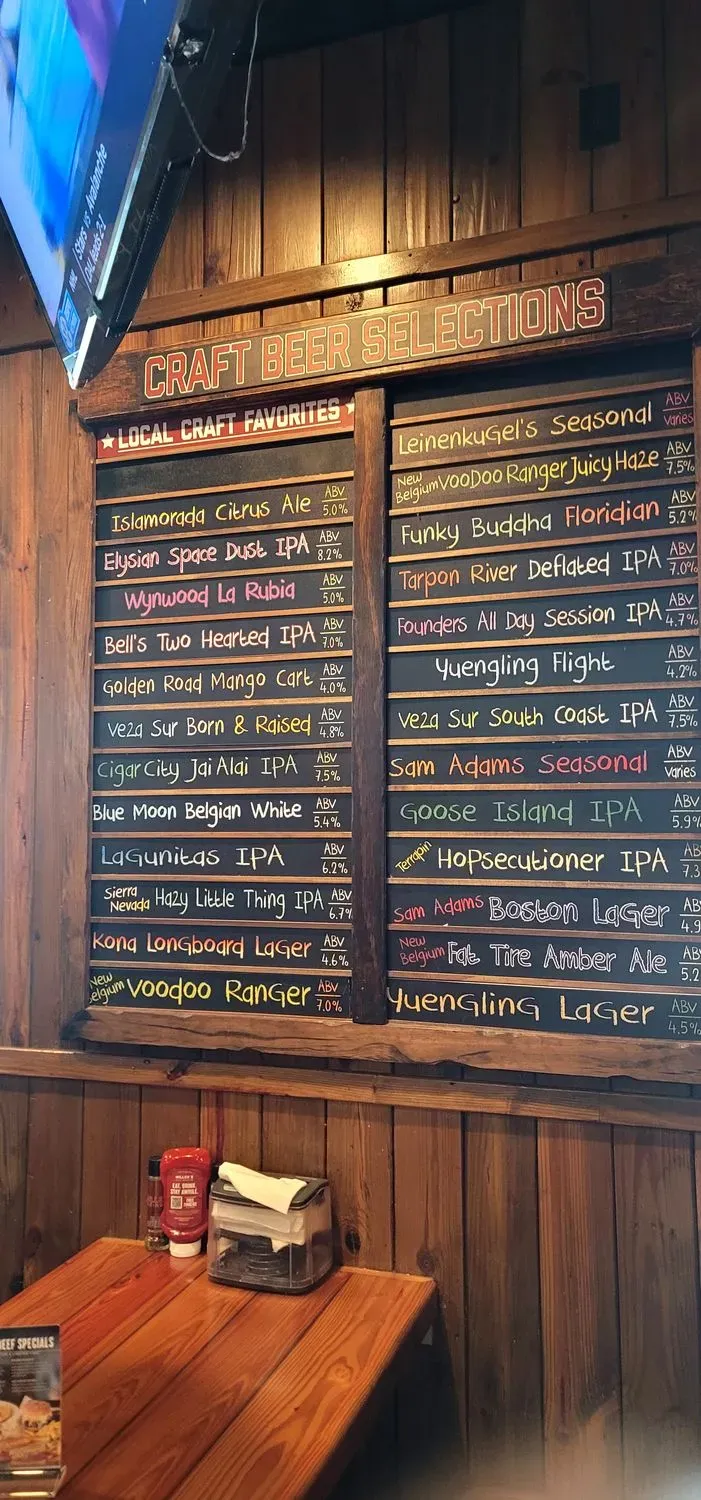 Stars vs Avalanche
NHL
DAL leads 2-1
CRAFT BEER SELECTIONS
LOCAL CRAFT FAVORITES
Islamorada Citrus Ale ABV 5.0%
Elysian Space Dust IPA ABV 8.2%
Wynwood La Rubia ABV 5.0%
Bell's Two Hearted IPA ABV 7.0%
Golden Road Mango Cart ABV 4.0%
Veza Sur Born & Raised ABV 4.8%
Cigar City Jai Alai IPA ABV 7.5%
Blue Moon Belgian White ABV 5.4%
LaGunitas IPA ABV 6.2%
Sierra Nevada Hazy Little Thing IPA ABV 6.7%
Kona Longboard LaGer ABV 4.6%
New Belgium Voodoo RanGer ABV 7.0%
LeinenkuGel's Seasonal ABV Varies
New Belgium VooDoo Ranger Juicy Haze ABV 7.5%
Funky Buddha Floridian ABV 5.2%
Tarpon River Deflated IPA ABV 7.0%
Founders All Day Session IPA ABV 4.7%
Yuengling Flight ABV 4.2%
Veza Sur South Coast IPA ABV 7.5%
Sam Adams Seasonal ABV Varies
Goose Island IPA ABV 5.9%
Terrapin HoPsecutioner IPA AB 7.3
Sam Adams Boston LaGer AB 4.9
New Belgium Fat Tire Amber Ale AB 5.2
YuenGLinG LaGer ABV 4.5%
MILLER'S
EAT, DRINK,
STAY AWHILE.
EEF SPECIALS